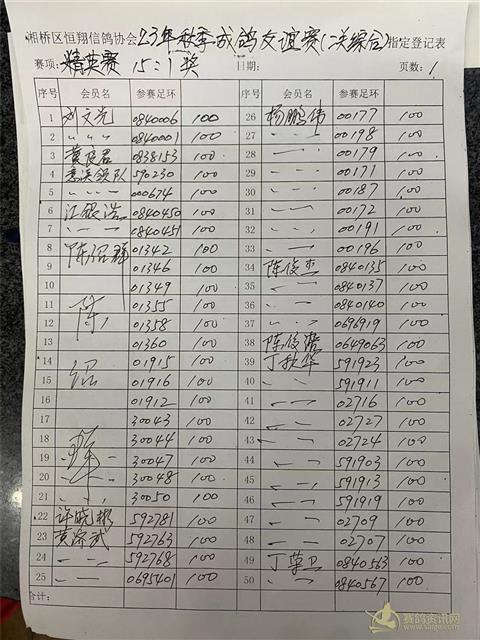 湘桥区恒翔信鸽协会23年秋季成鸽友谊赛(二次综合)指定登记表
赛项: 精英赛 15:1奖 日期: 页数: 1
序号 会员名 参赛足环 序号 会员名 参赛足环
1 刘文光 0840006 100 26 杨鹏伟 00177 100
2 〃 〃 〃 0840001 100 27 00198 100
3 黄良君 0838153 100 28 00179 100
4 590230 100 29 00171 100
5 000674 100 30 00187 100
6 江银浩 0840450 100 31 00172 100
7 0840451 100 32 00191 100
8 陈绍群 01342 100 33 00196 100
9 01346 100 34 陈俊杰 0840135 100
10 01349 100 35 0840137 100
11 陈 01355 100 36 0840140 100
12 01358 100 37 0696919 100
13 01360 100 38 陈俊 0649063 100
14 绍 01915 100 39 丁秋华 591923 100
15 01916 100 40 591911 100
16 01912 100 41 02716 100
17 30043 100 42 02727 100
18 群 30044 100 43 02724 100
19 30047 100 44 591903 100
20 30048 100 45 591913 100
21 30050 100 46 591919 100
22 许晓彬 592781 100 47 02709 100
23 592763 100 48 02707 100
24 592768 100 49 丁草卫 0840563 100
25 0695401 100 50 0840567 100
合计:
赛鸽资讯网
www.saige.com